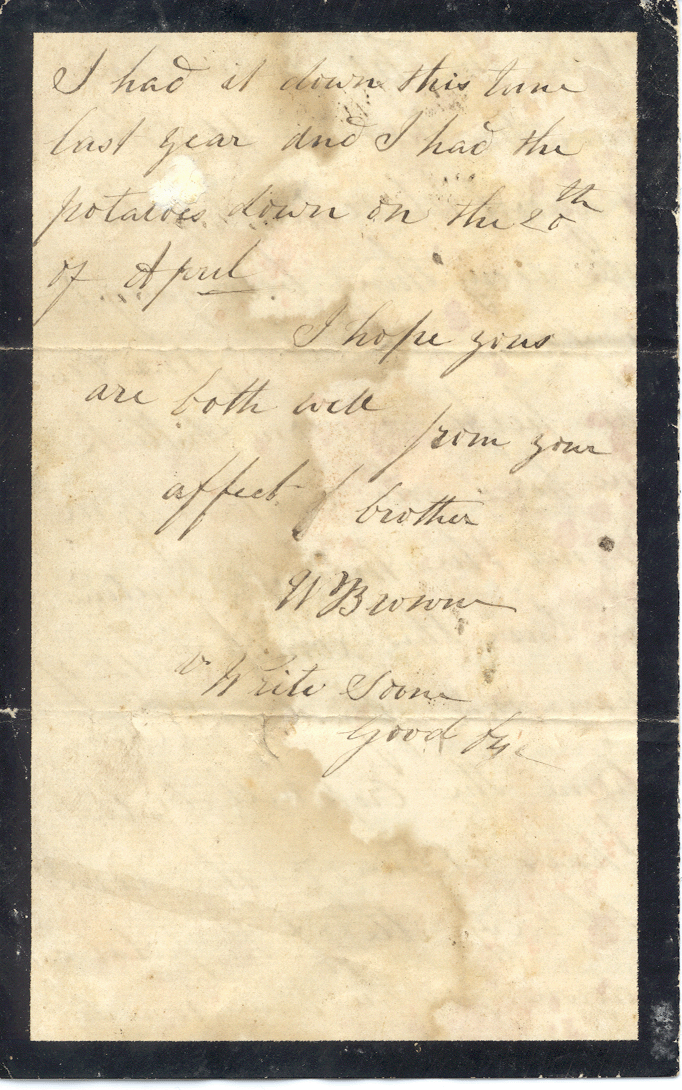 I had it down this time
last year and I had the
potatoes down on the 20th
of April
I hope yous
are both well
from your
affect
brother
W Browne
Write Soone
Good by